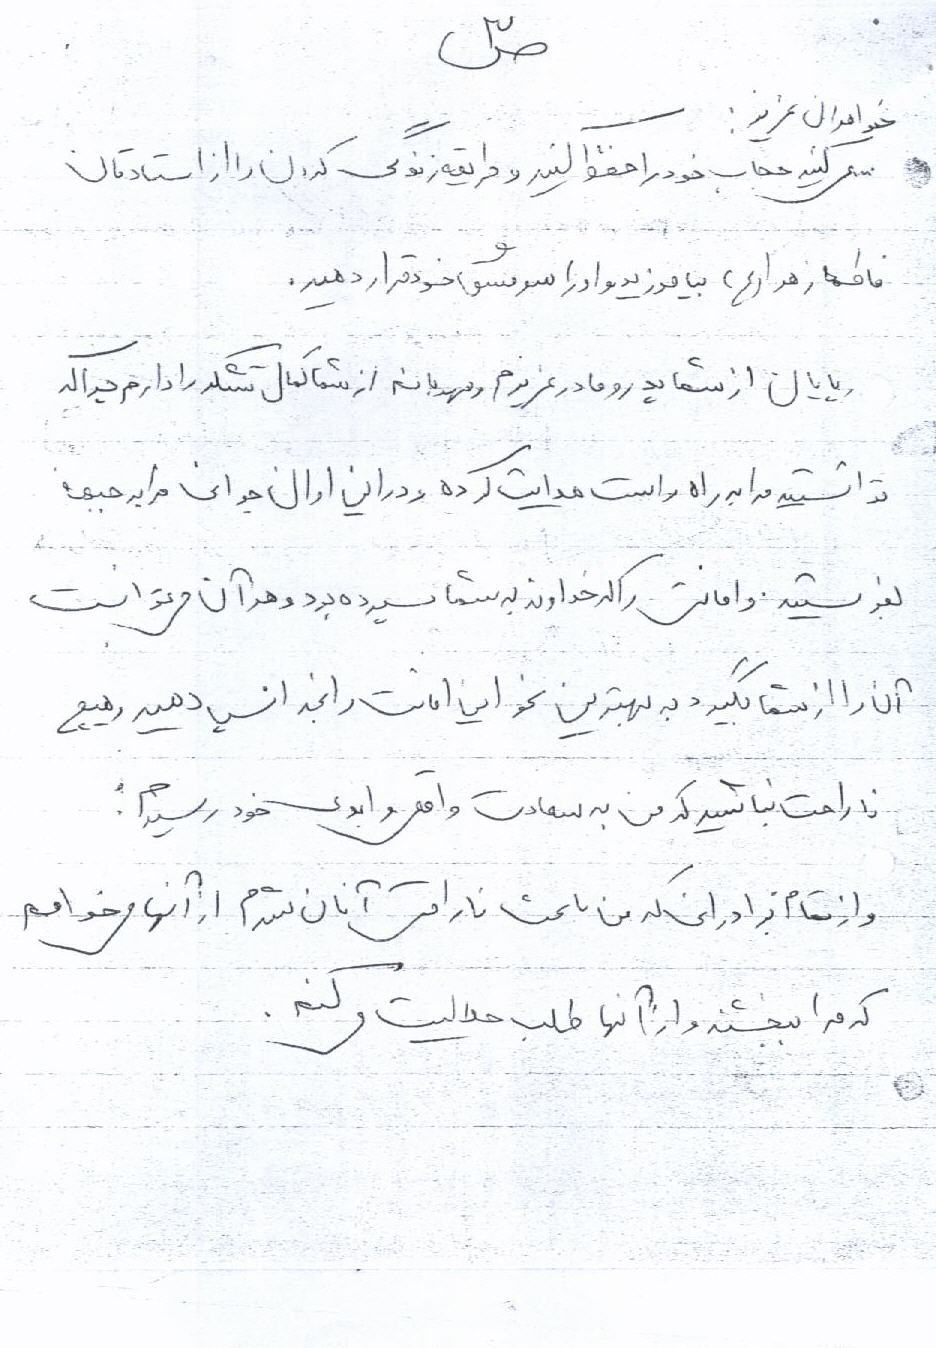 ص ۳
خواهران عزیز:
سعی کنید حجاب خود را حفظ کنید و طریقه زندگی کردن را از استادتان
فاطمه زهرا (س) بیاموزید و او را سرمشق خود قرار دهید.
پایان از شما پدر و مادر عزیزم و مهربانم از شما کمال تشکر را دارم چرا که
توانستید مرا به راه راست هدایت کرده و در این اوان جوانی مرا به جبهه
بفرستید. و امانتی را که خداوند به شما سپرده بود و هر آن می توانست
آن را از شما بگیرد به بهترین نحو این امانت را به خدا پس دهید و هیچ
ناراحت نباشید که من به سعادت واقعی و ابدی خود رسیدم.
و از تمام برادرانی که من باعث ناراحتی آنان شدم از آنها می خواهم
که مرا ببخشند و از آنها طلب حلالیت می کنم.